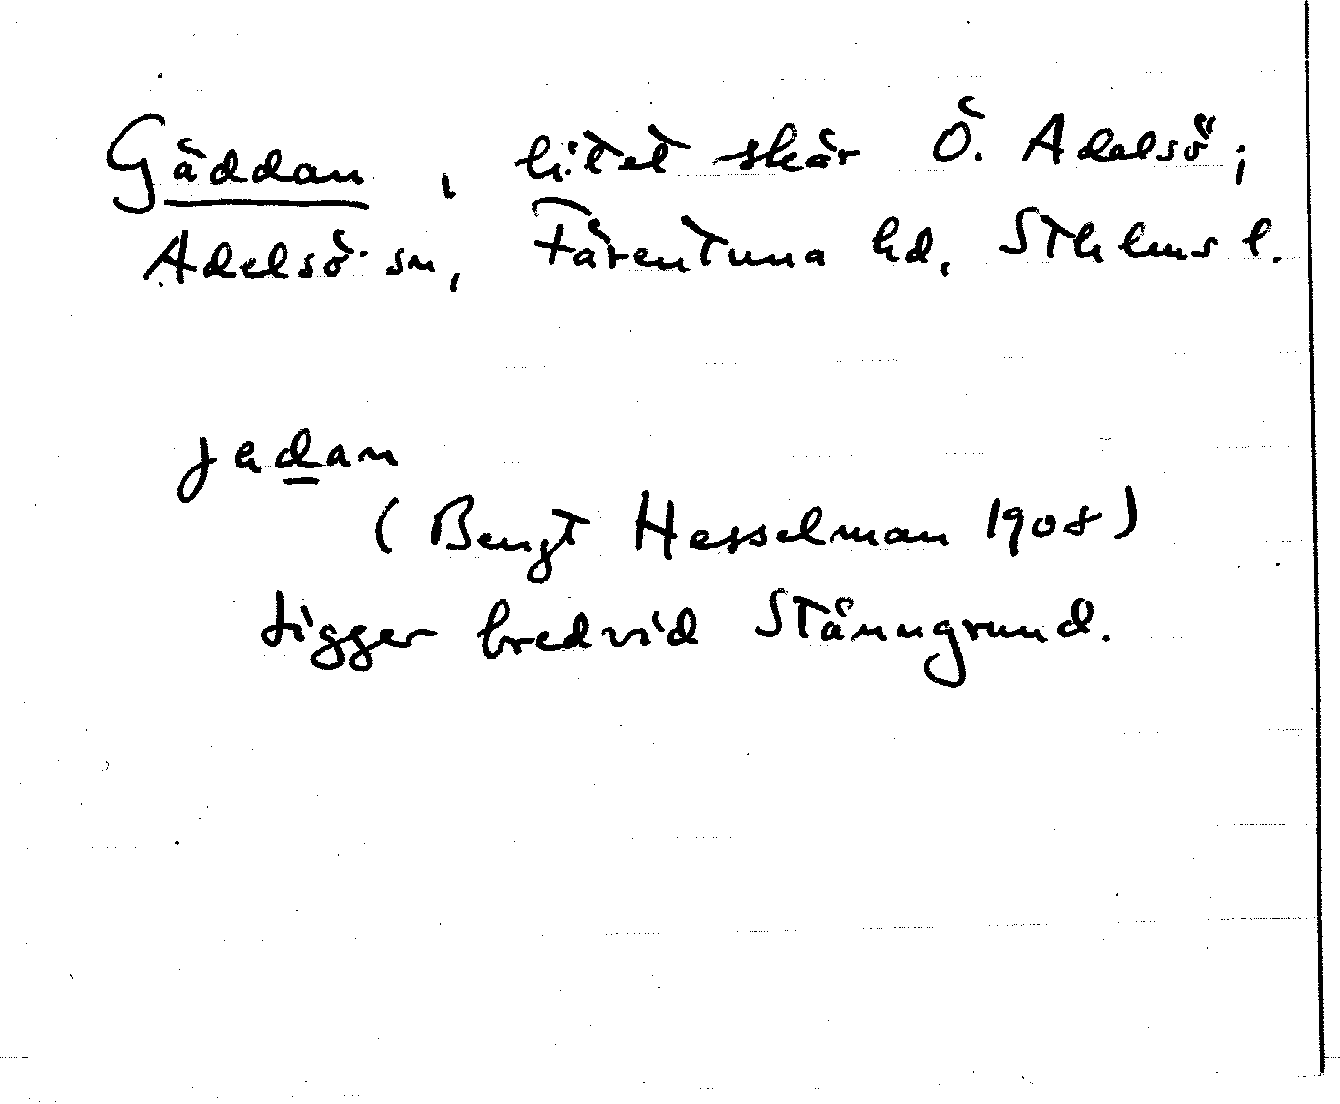 Gäddan, litet skär Ö. Adelsö;
Adelsö sn, Färentuna hd, Sthlms l.
jedan
(Bengt Hesselman 1908)
ligger bredvid Stänngrund.